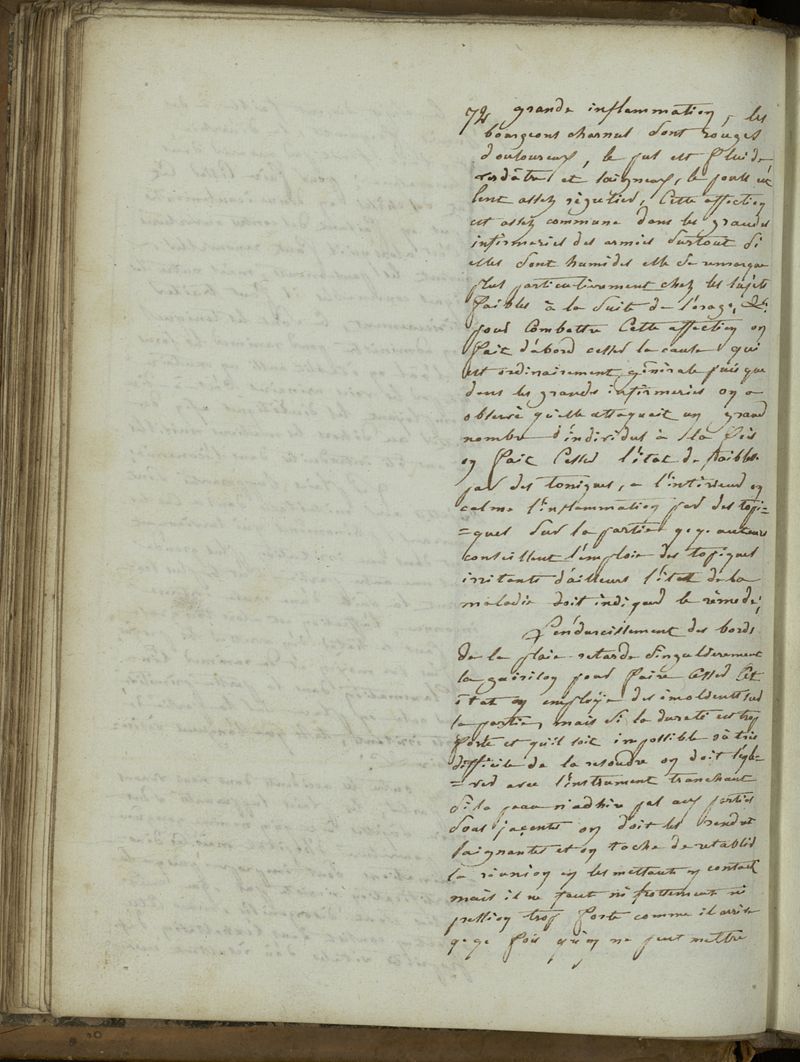 72 grande inflammation, les
bourgeons charnus sont rouges
douloureux, le pus est fluide
verdâtre et saigneux, le pouls est
lent assez régulier, Cette affection
est assez commune dans les grandes
infirmeries des armées surtout si
elles sont humides elle se remarque
plus particulièrement chez les sujets
faibles à la suite de l'orage, &c.
pour Combattre Cette affection on
fait d'abord cesser la cause qui
est ordinairement générale puisque
dans les grandes infirmeries on a
observé qu'elle attaquait un grand
nombre d'individus à la fois
on fait Cesser l'état de faibless
par des toniques, a l'intérieur on
calme l'inflammation par des topi=
=ques sur la partie q.q. auteurs
conseillent l'emploie des topiques
irritants d'ailleurs l'état de la
maladie doit indiquer le remède,
L'endurcissement des bords
de la plaie retarde singulierement
la guérison pour faire Cesser Cet
état on employe des émolients sur
la partie, mais si la dureté est trop
forte et qu'il soit impossible ou très
difficile de la resoudre on doit l'enle=
=ver avec l'instrument tranchant
Si la peau n'adhère pas aux parties
Sous jaçentes on doit les rendre
saignantes et on tache de retablir
la réunion en les mettant en contact
mais il ne faut ni frottement ni
pression trop forte comme il arrive
q.q. fois qu'on ne peut mettre